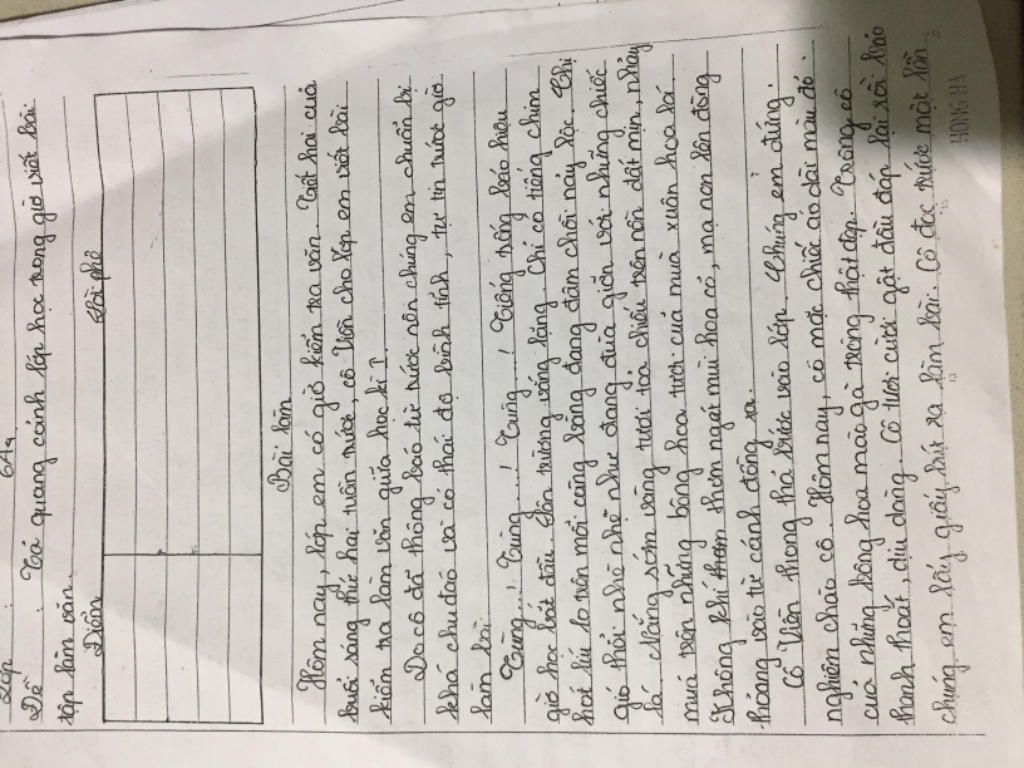 Lớp : 6A4
Đề : Tả quang cảnh lớp học trong giờ viết bài
tập làm văn.
Điểm Lời phê
Bài làm
Hôm nay, lớp em có giờ kiểm tra văn. Tiết hai của
buổi sáng thứ hai tuần trước, cô Viên cho lớp em viết bài
kiểm tra làm văn giữa học kì I.
Do cô đã thông báo từ trước nên chúng em chuẩn bị
khá chu đáo và có thái độ bình tĩnh, tự tin trước giờ
làm bài.
Tùng...! Tùng...! Tùng...! Tiếng trống báo hiệu
giờ học bắt đầu. Sân trường vắng lặng. Chỉ có tiếng chim
hót líu lo trên mỗi cây bàng đang đâm chồi nảy lộc. Chị
gió thổi nhè nhẹ như đang đùa giỡn với những chiếc
lá. Nắng sớm vàng tươi tỏa chiếu trên nền đất mịn, nhảy
múa trên những bông hoa tươi của mùa xuân hoa lá.
Không khí thơm thơm ngát mùi hoa cỏ, mạ non lên đòng
thoáng vào từ cánh đồng xa.
Cô Viên thong thả bước vào lớp. Chúng em đứng
nghiêm chào cô. Hôm nay, cô mặc chiếc áo dài màu đỏ
của những bông hoa mào gà trông thật đẹp. Trông cô
thanh thoát, dịu dàng. Cô tươi cười gật đầu đáp lại rồi bảo
chúng em lấy giấy bút ra làm bài. Cô đọc trước một lần
HONG HA